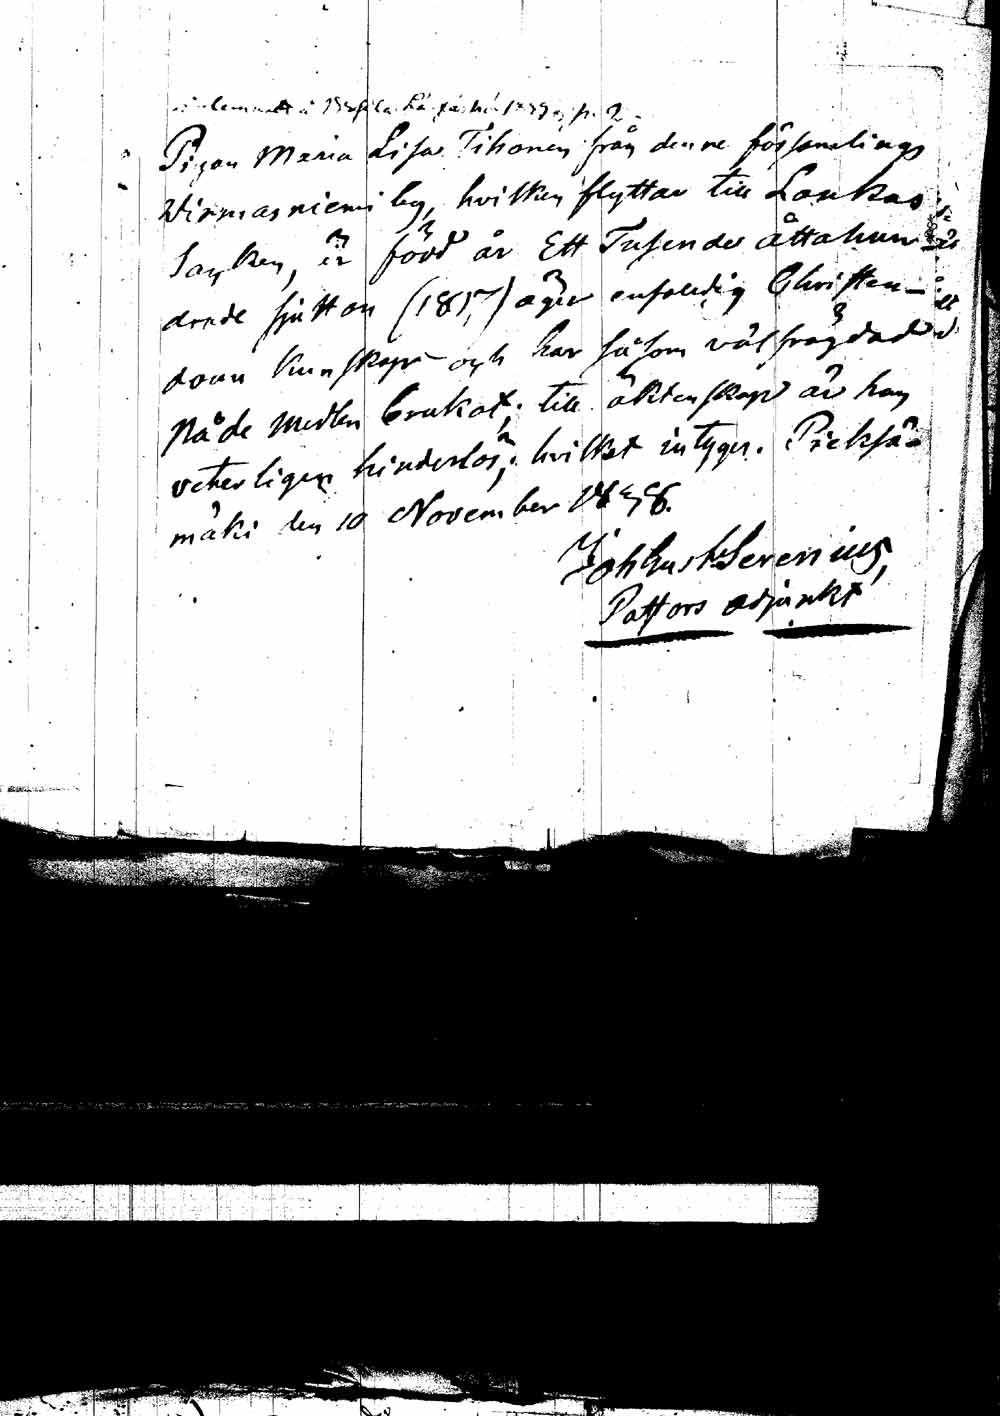 Pigan Maria Lisa Tihonen från denne församlings
Wirmasniemi by, hvilken flyttar till Laukas
Sanken, är född år Ett Tusende åttahun-
drade sjutton (1817) äger enfaldig Christen-
doms kunskap och har såsom välfrägdad
Nåde medlen brukat; till äktenskap är hon
veterligen hinderlös; hvilket intygar. Pieksä-
mäki den 10 November 1838.
Joh Gust Serenius,
Pastors adjunkt